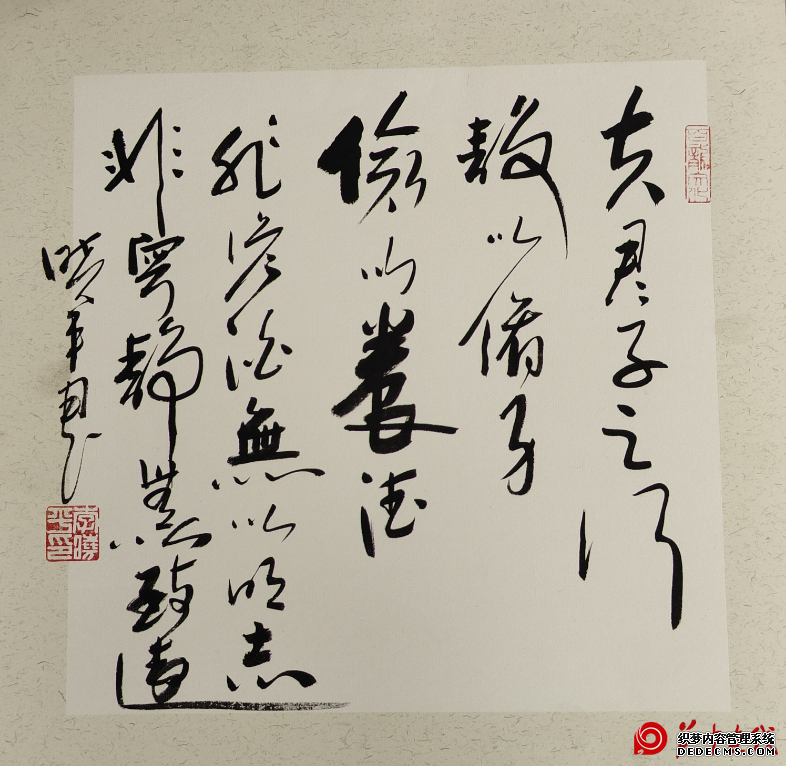 夫君子之行
靜以脩身
儉以養德
非澹泊無以明志
非寧靜無致遠
曉平
李曉平印
织梦内容管理系统
DEDECMS.COM